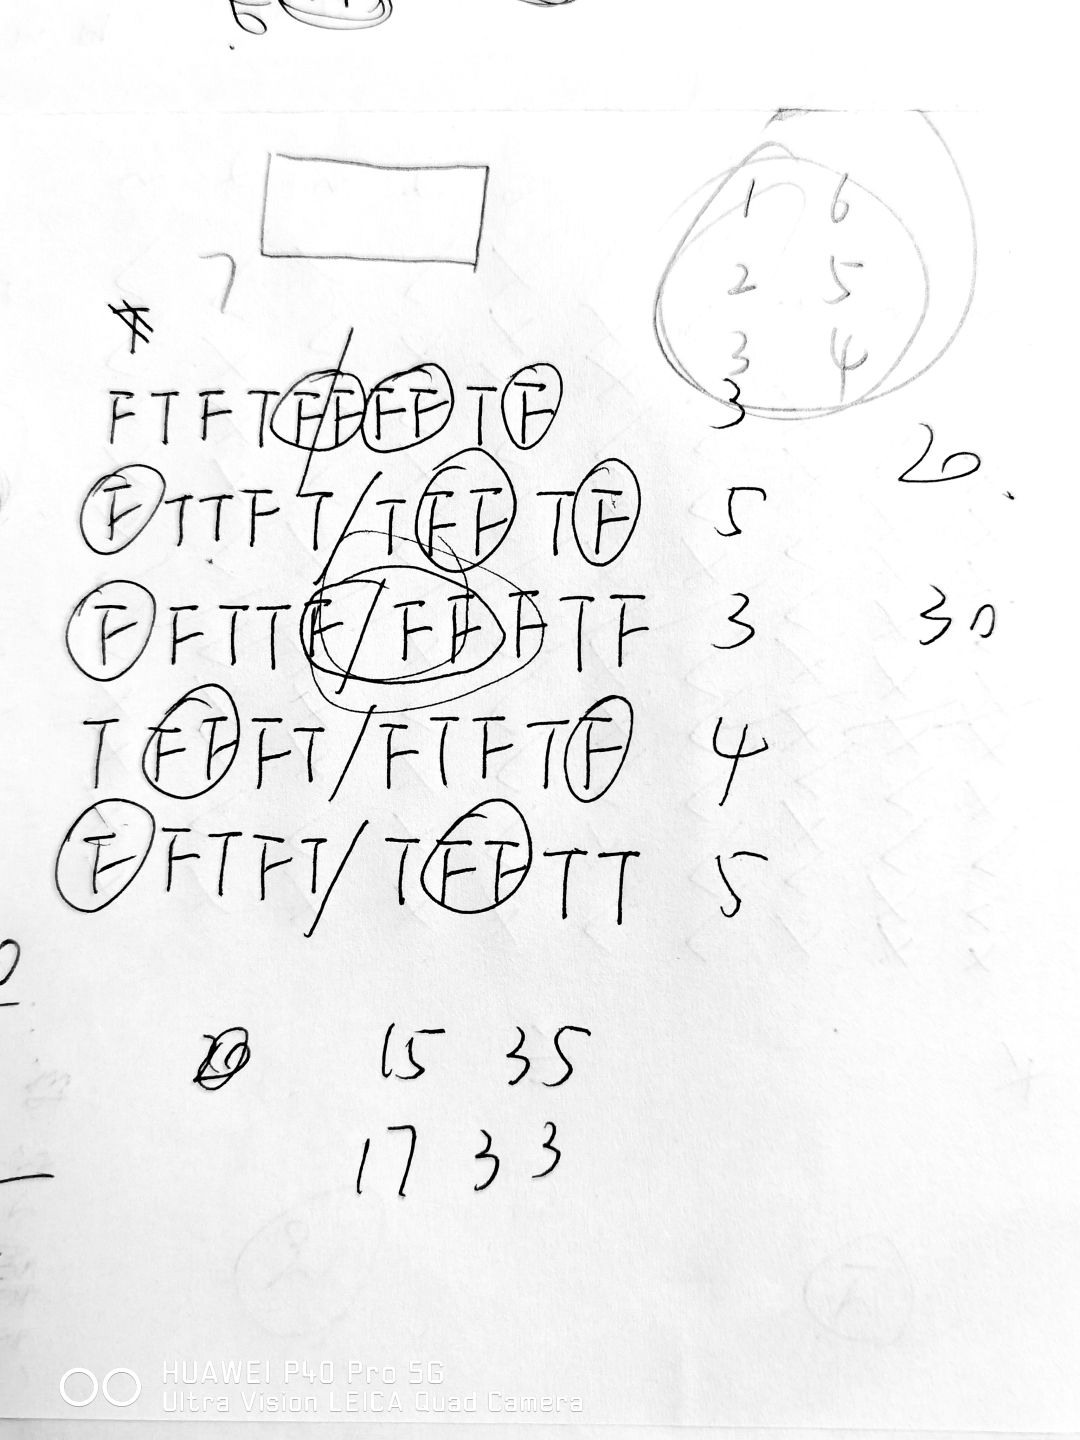 1 6
2 5
3 4
7
F T F T F / F F F T F 3
20
F T T F T / T F F T F 5
F F T T F / F F F T F 3 30
T F F F T / F T F T F 4
F F T F T / T F F T T 5
15 35
17 33
HUAWEI P40 Pro 5G
Ultra Vision LEICA Quad Camera